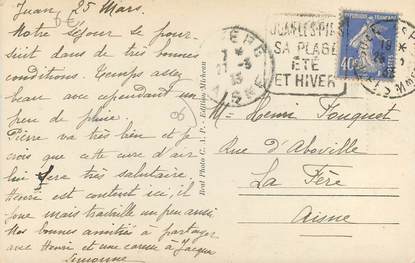 Juan, 25 Mars.
Notre séjour se pour-
suit dans de très bonnes
conditions. Temps assez
beau avec cependant un
peu de pluie.
Pierre va très bien et je
crois que cette cure d'air
lui sera très salutaire.
Henri est content ici, il
joue mais travaille un peu aussi
Nos bonnes amitiés à partager
avec Henri et une caresse à Jacques
Simonne
Real Photo C. A. P. - Edition
JUAN LES PINS
SA PLAGE
ÉTÉ
ET HIVER
FERE
AISNE
40c
Mme Henri Fouquet
Rue d'Aboville
La Fère
Aisne